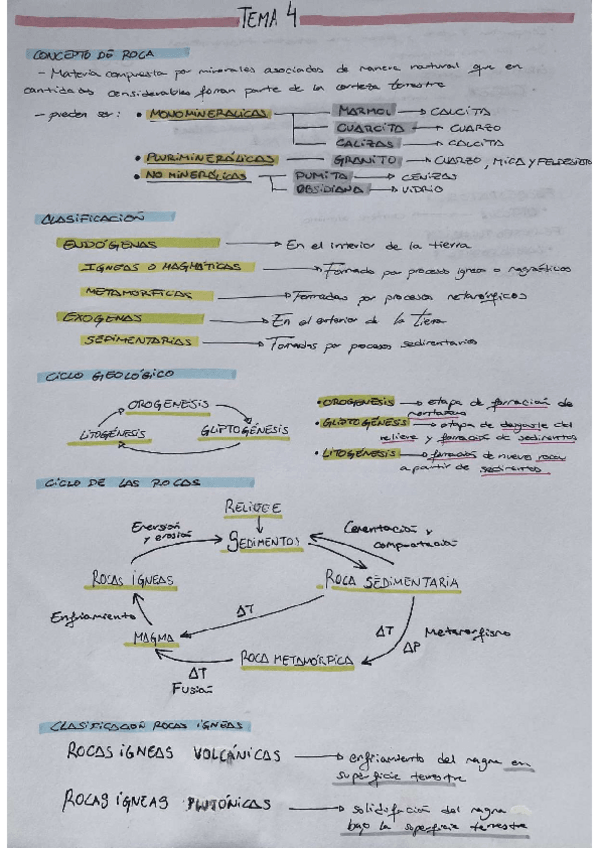 TEMA 4
CONCEPTO DE ROCA
- Materia compuesta por minerales asociados de manera natural que en
cantidades considerables forman parte de la corteza terrestre
- pueden ser: • MONOMINERALICAS MARMOL → CALCITA
CUARCITA → CUARZO
CALIZAS → CALCITA
• PLURIMINERÁLICAS GRANITO → CUARZO, MICA Y FELDESPATO
• NO MINERÁLICAS PUMITA → CENIZAS
OBSIDIANA → VIDRIO
CLASIFICACIÓN
ENDÓGENAS → En el interior de la tierra
IGNEAS O MAGMÁTICAS → Formadas por procesos igneos o magmáticos
METAMORFICAS → Formadas por procesos metamórficos
EXOGENAS → En el exterior de la Tierra
SEDIMENTARIAS → Formadas por procesos sedimentarios
CICLO GEOLÓGICO
OROGENESIS
LITOGÉNESIS GLIPTOGÉNESIS
• OROGENESIS → etapa de formación de
montañas
• GLIPTOGÉNESIS → etapa de desgaste del
relieve y formación de sedimentos
• LITOGÉNESIS → formación de nuevas rocas
a partir de sedimentos
CICLO DE LAS ROCAS
RELIEVE
Emersión
y erosión
SEDIMENTOS
Cementación y
compactación
ROCAS ÍGNEAS
ROCA SEDIMENTARIA
Enfriamiento
ΔT
MAGMA
ΔT
ΔP
Metamorfismo
ROCA METAMÓRFICA
ΔT
Fusión
CLASIFICACION ROCAS IGNEAS
ROCAS IGNEAS VOLCÁNICAS → enfriamiento del magma en
superficie terrestre
ROCAS IGNEAS PLUTÓNICAS → solidificación del magma
bajo la superficie terrestre